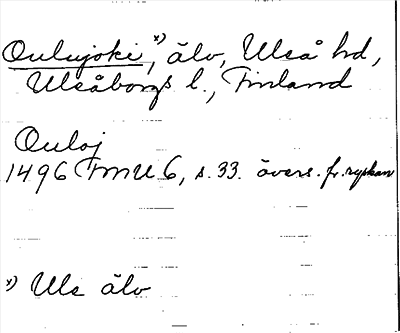 Oulujoki, x) älv, Uleå hd,
Uleåborgs l., Finland
Ouloj
1496 FMU 6, s. 33. övers. fr. ryskan
x) Ule älv